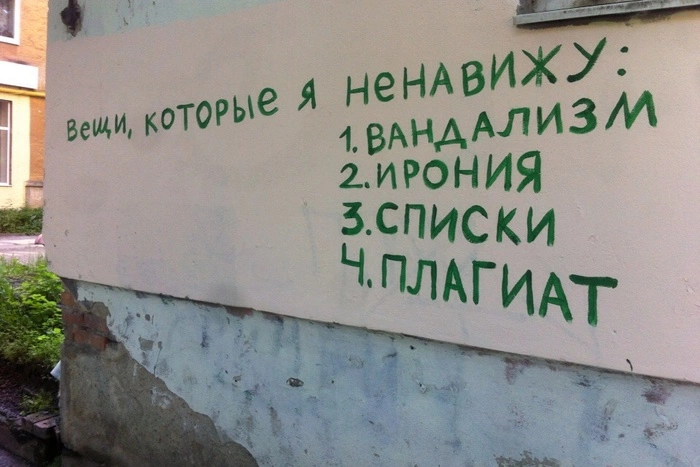 Вещи, которые я ненавижу:
1. ВАНДАЛИЗМ
2. ИРОНИЯ
3. СПИСКИ
4. ПЛАГИАТ